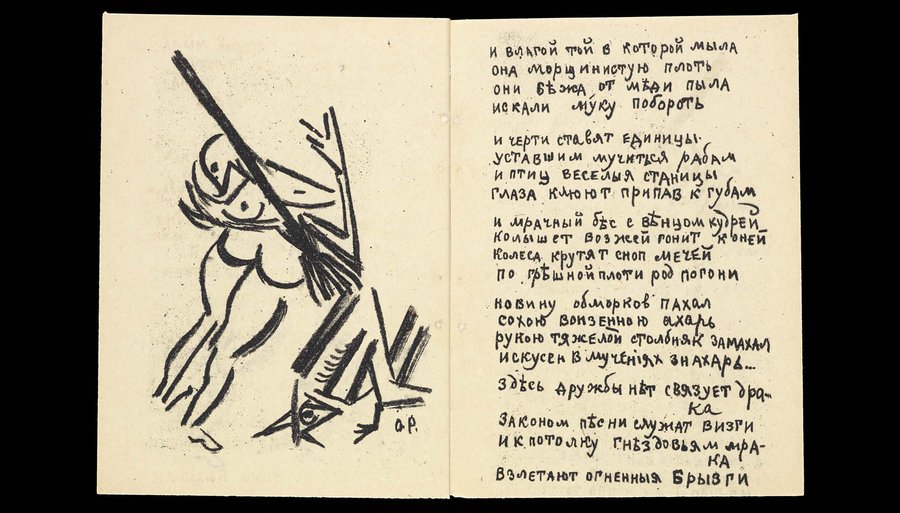 О.Р.
и влагой той в которой мыла
она морщинистую плоть
они бѣжа от мѣди пыла
искали му́ку побороть
и черти ставят единицы.
уставшим мучиться рабам
и птиц веселыя станицы
глаза клюют припав к губам
и мрачный бѣс с вѣнцом кудрей
колышет возжей гонит коней
колеса крутят сноп мечей
по грѣшной плоти род погони
новину обморков пахал
сохою вонзенною ахарь
рукою тяжелой столбняк замахал
искусен в мучениях знахарь...
здѣсь дружбы нѣт связует дра-
ка
законом пѣсни служат визги
и к потолку гнѣздовьям мра-
ка
взлетают огненныя брызги